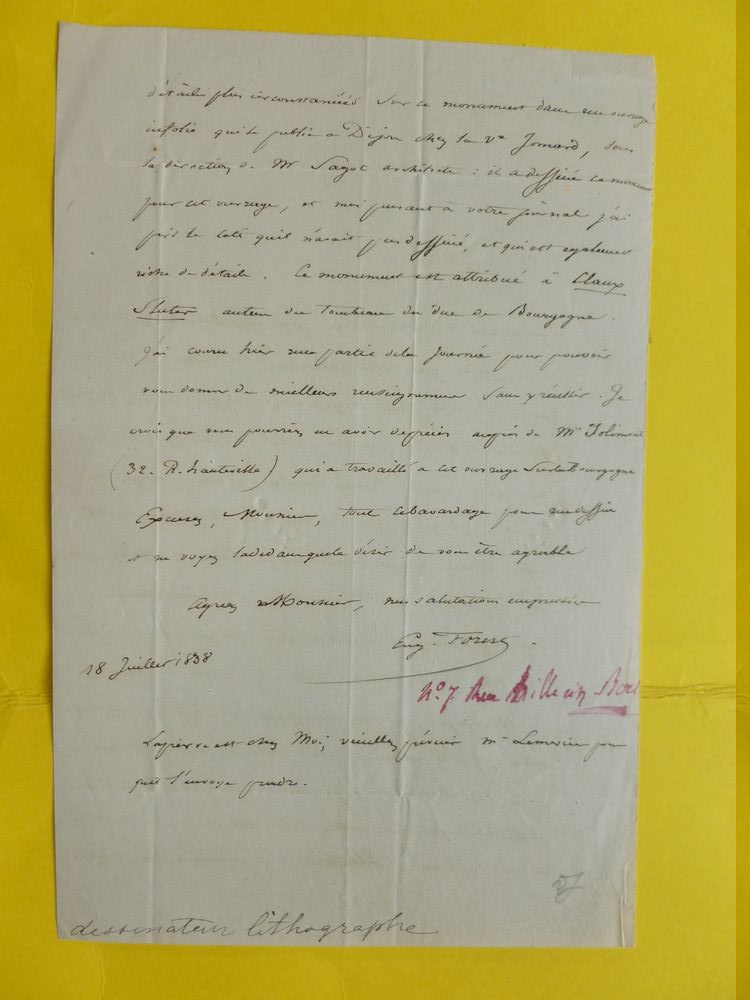 détails plus circonstanciés sur ce monument dans un ouvrage
infolio qui se publie a Dijon chez la Ve Jomard, sous
la direction de Mr Sagot architecte : il a dessiné ce monument
pour cet ouvrage, et moi pensant à votre journal j'ai
pris le coté qu'il n'avait pas dessiné, et qui est egalement
riche de détails. Ce monument est attribué à Claux
Sluter auteur du tombeau du duc de Bourgogne.
J'ai couru hier une partie de la journée pour pouvoir
vous donner de meilleurs renseignemens sans y réussir. Je
crois que vous pourriez en avoir de précis auprès de Mr Jolimont
(32. R. hauteville) qui a travaillé a cet ouvrage sur la Bourgogne
Excusez, Monsieur, tout ce bavardage pour un dessin
et ne voyez la dedans que le désir de vous être agréable
Agréez Monsieur, mes salutations empressées
Eug. Forest.
18 Juillet 1838
No 7 Rue
La pierre est chez Moi, veuillez prévenir Mr Lemercier pour
qu'il l'envoye prendre.
dessinateur lithographe